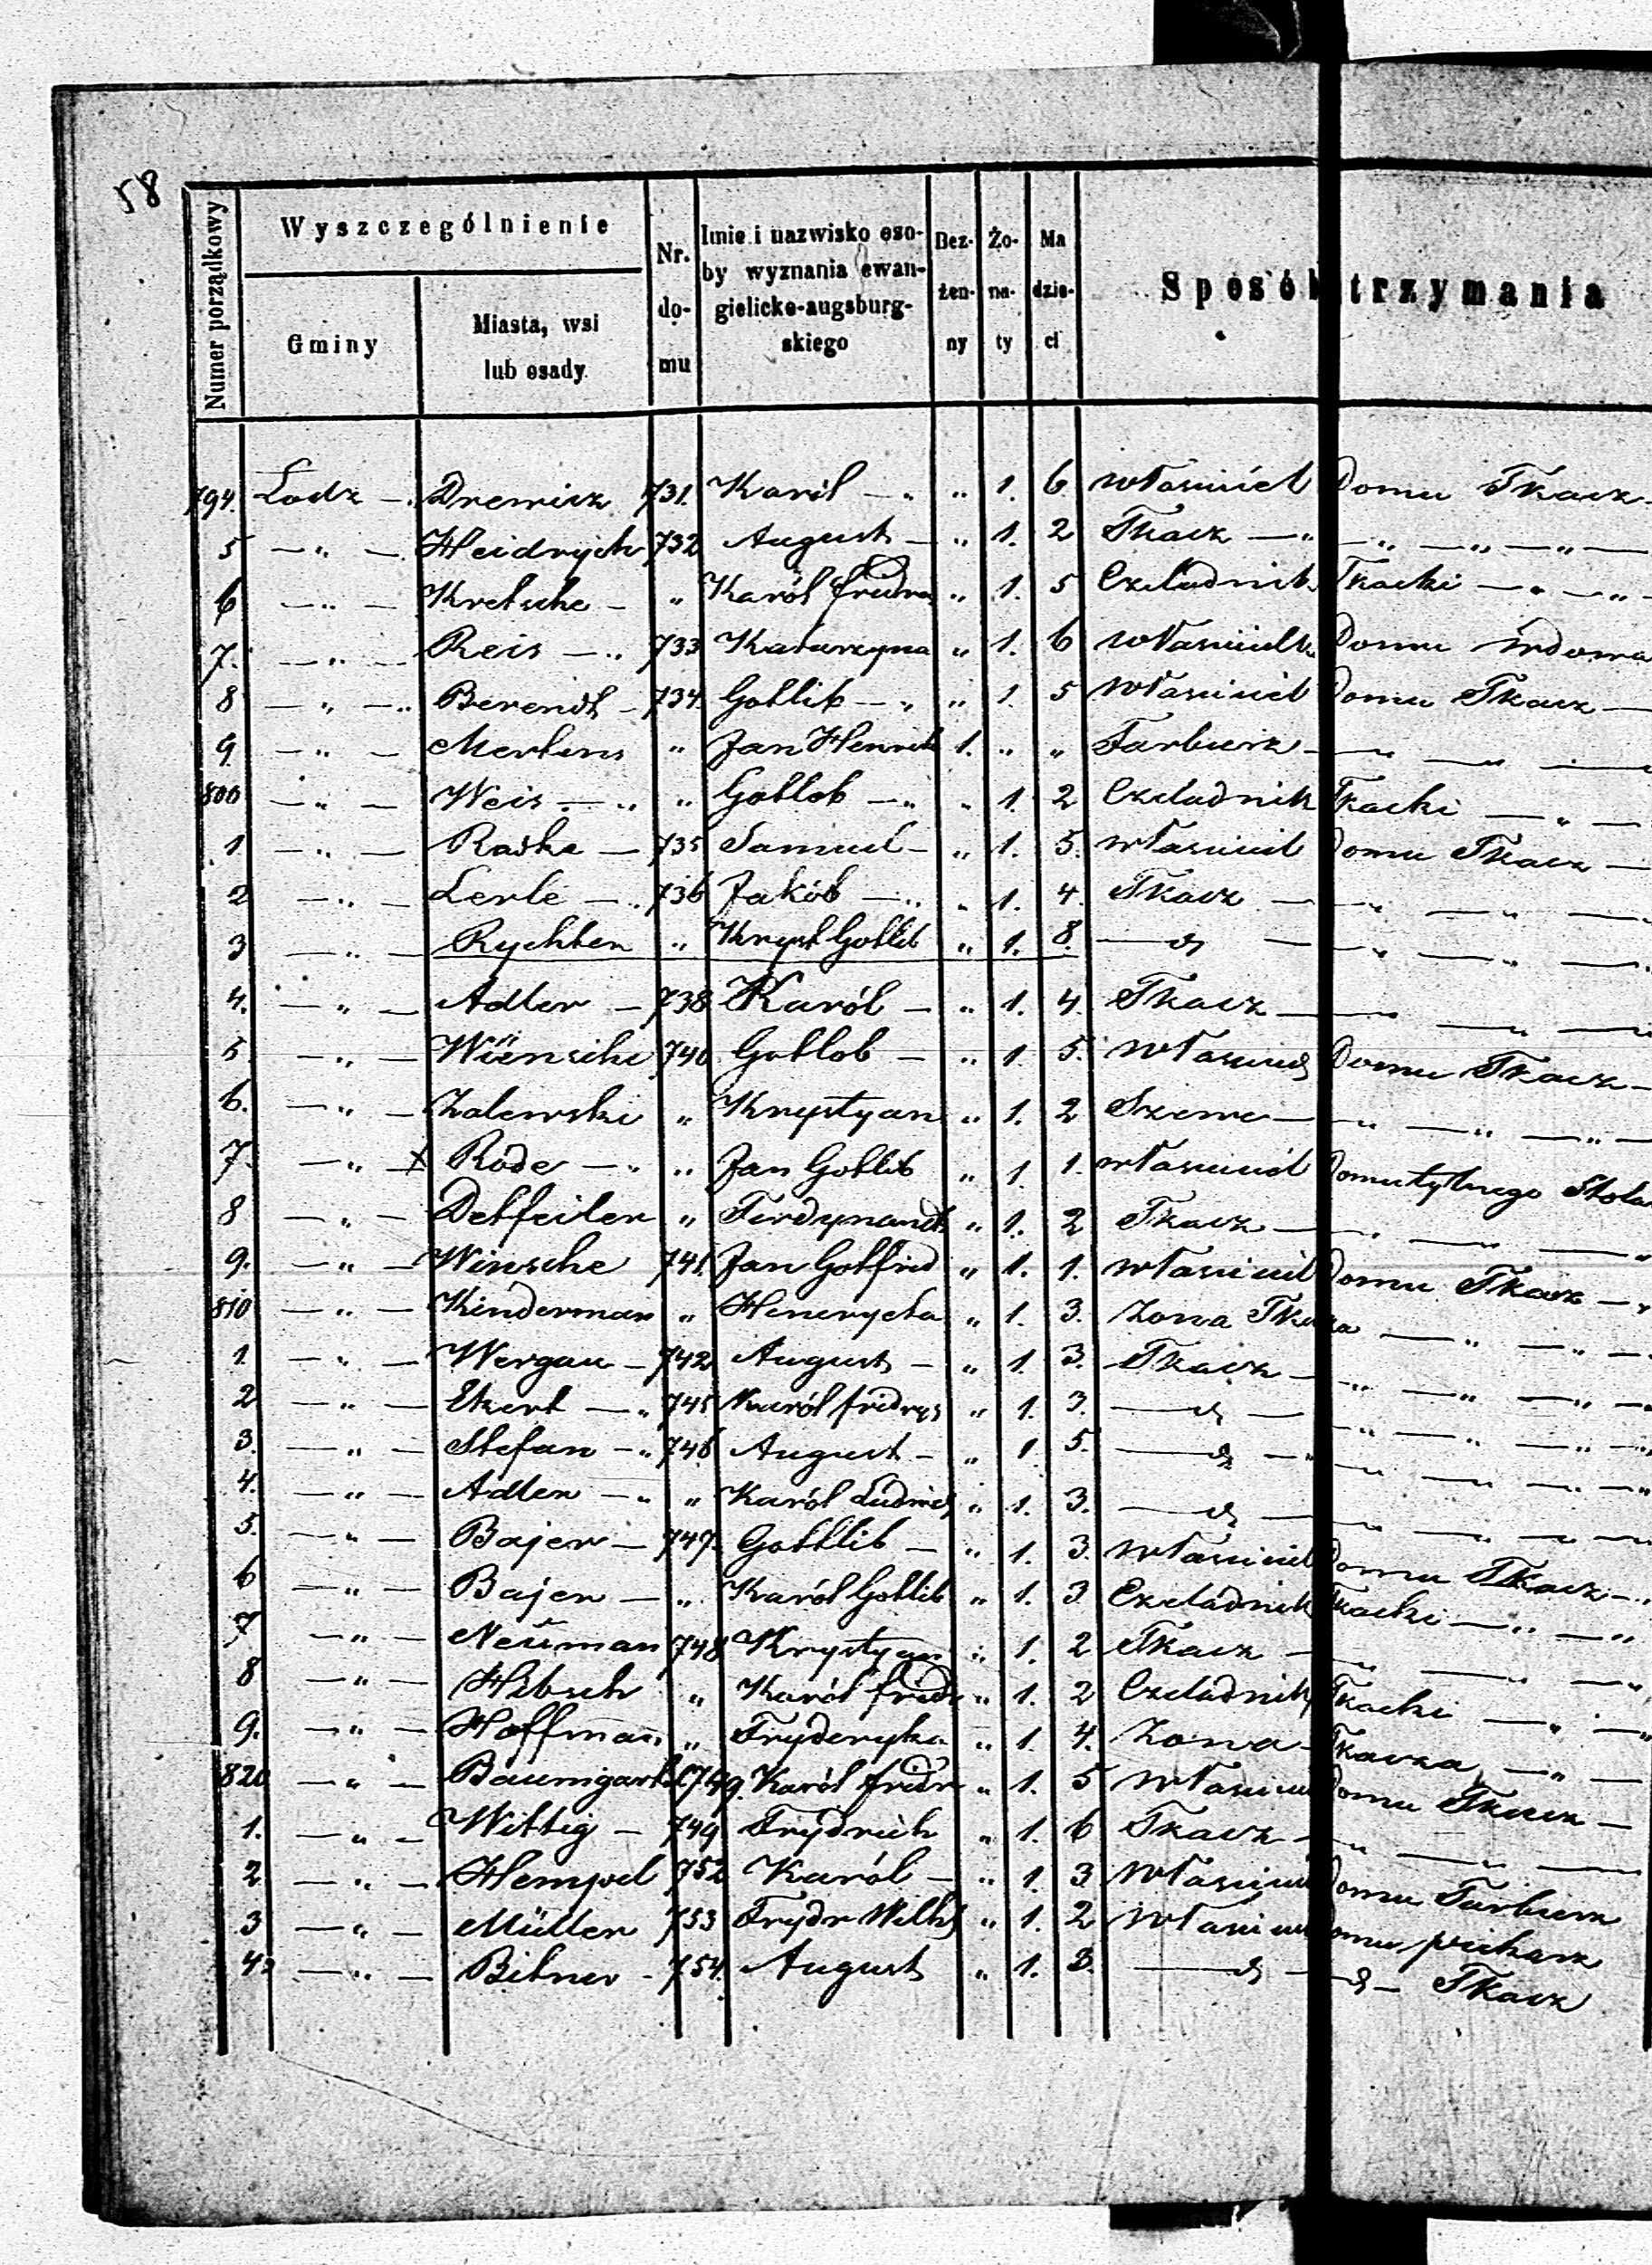 58
Numer porządkowy
Wyszczególnienie
Gminy
Miasta, wsi lub osady
Nr. do- mu
Imie i nazwisko oso- by wyznania ewan- gielicko-augsburg- skiego
Bez- żen- ny
Żo- na- ty
Ma dzie- ci
Sposób trzymania
794. Lodz — Drewicz 731. Karól — „ 1. 6. własciciel Domu Tkacz —
5 — „ — Heidrych 732 August — „ 1. 2 Tkacz — „ — „ — „ — „ —
6 — „ — Kretsche — „ Karól fridr „ 1. 5 Czeladnik Tkacki — „ — „ —
7. — „ — Reis — „ 733 Katarzyna „ 1. 6 własciciel Domu wdowa
8 — „ — „ Berendt — 734. Gottlib — „ „ 1. 5 własciciel Domu Tkacz —
9 — „ — Mertins „ Jan Henrik 1. „ „ Farbierz — „ — „ —
800 — „ — Weis — „ „ Gotlob — „ „ 1. 2 Czeladnik Tkacki — „ —
1 — „ — Raske — 735 Samuel — „ 1. 5. własciciel Domu Tkacz —
2 — „ — Lerle — „ 736 Jakób — „ „ 1. 4. Tkacz — „ — „ —
3 — „ — Rychter „ Kryst Gotlib „ 1. 8. — d — „ — „ —
4. — „ — Adler — 738 Karól — „ 1. 4. Tkacz — „ — „ —
5 — „ — Wiensche 740 Gotlob — „ 1. 5. własciciel Domu Tkacz —
6. — „ — Zalewski „ Krystyan „ 1. 2 Szewc — „ — „ — „ —
7. — „ — x Rode — „ „ Jan Gotlib „ 1 1. własciciel Domu tylnego Stola
8 — „ — Detfeiler „ Ferdynandt „ 1. 2 Tkacz — „ — „ —
9. — „ — Winsche 741. Jan Gotfrid „ 1. 1. własciciel Domu Tkacz — „
810 — „ — Kinderman „ Henerycha „ 1. 3. Zona Tkacza — „ — „ —
1. — „ — Wergau — 742 August — „ 1. 3. Tkacz — „ — „ — „ —
2 — „ — Ekert — „ 745 Karól fridrych „ 1. 3. — d — „ — „ — „ —
3. — „ — Stefan — „ 746 August — „ 1. 5. — d — „ — „ — „
4. — „ — Adler — „ „ Karól Ludwik „ 1. 3. — d — „ — „ —
5. — „ — Bajer — 747. Gottlib — „ 1. 3. własciciel Domu Tkacz — „
6 — „ — Bajer — „ Karól Gotlib „ 1. 3 Czeladnik Tkacki — „ — „
7 — „ — Neüman 748 Krystyan „ 1. 2 Tkacz — „ — „
8 — „ — Hibsch „ Karól fridr „ 1. 2 Czeladnik Tkacki — „ — „
9. — „ — Hoffman „ Fryderyka „ 1. 4. Zona Tkacza — „ —
820 — „ — Baumgart 749. Karól fridr „ 1. 5 własciciel Domu Tkacz —
1. — „ — Wittig — 749 Frydrich „ 1. 6 Tkacz — „ — „ —
2. — „ — Hempel 752 Karól — „ 1. 3 własciciel Domu Farbierz
3 — „ — Müller 753 Frydr Wilh „ 1. 2 własciciel Domu piekarz
4. — „ — Bitner — 754. August „ 1. 3. — d — d — Tkacz